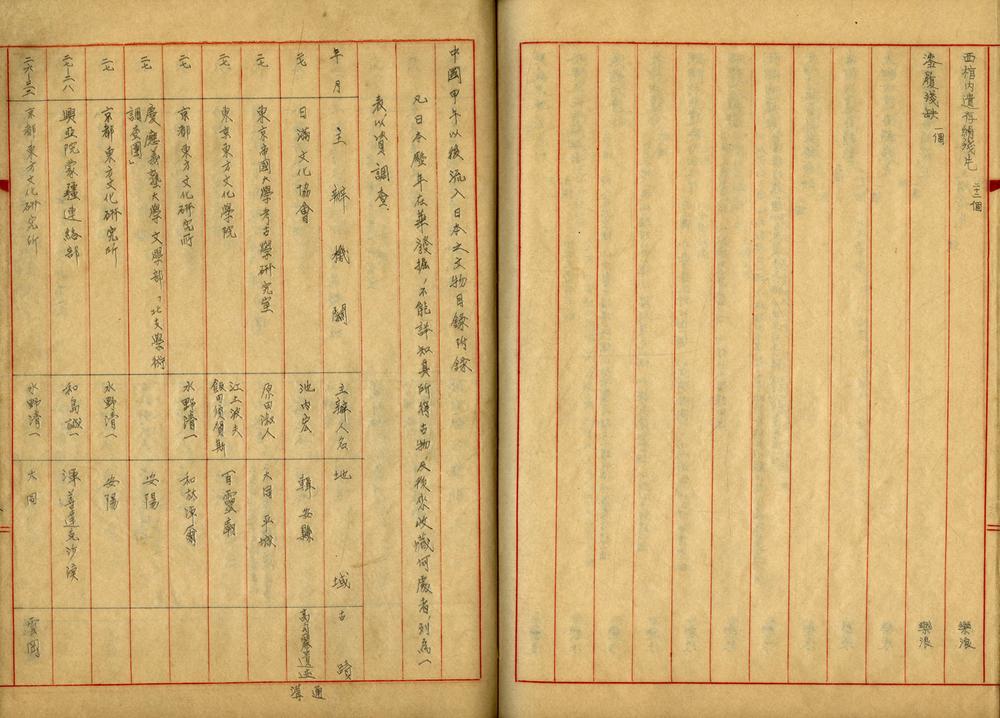 西棺內遺存絹殘片 二十二個 樂浪
漆履殘缺 一個 樂浪
中國甲午以後流入日本之文物目錄附錄
凡日本歷年在華發掘，不能詳知其所得古物，及後來收藏何處者，列爲一
表以資調查
年 月 主辦機關 主辦人名 地域 古蹟
二七 日滿文化協會 池內宏 輯安縣 高句麗遺蹟 通溝
二七 東京帝國大學考古學研究室 原田淑人 大同 平城
二七 東京東方文化學院 江上波夫 飯田須賀斯 百靈廟
二七 京都東方文化研究所 水野清一 和林淖爾
二七 慶應義塾大學文學部「北支學術
調查團」 安陽
二七 京都東方文化研究所 水野清一 安陽
二七－二八 興亞院蒙疆連絡部 和島誠一 渾善達克沙漠
京都東方文化研究所 水野清一 大同 雲岡